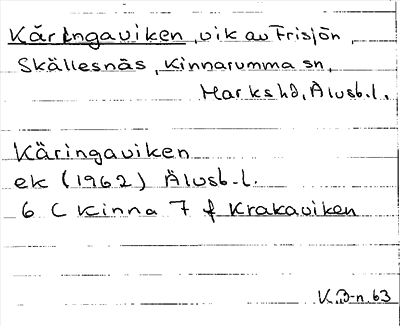 Käringaviken, vik av Frisjön,
Skällesnäs, Kinnarumma sn,
Marks hd, Älvsb.l.
Käringaviken
ek (1962) Älvsb.l.
6 C Kinna 7 f Krakaviken
K.B-n 63